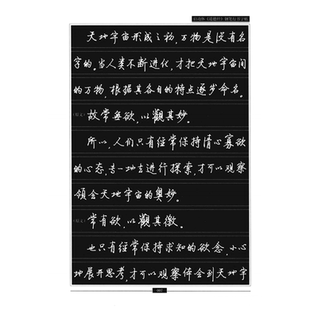 天地宇宙形成之初，万物是没有名
字的。当人类不断进化，才把天地宇宙间
的万物，根据其各自的特点逐步命名。
故常无欲，以觀其妙。
所以，人们只有经常保持清心寡欲
的心态，去一地去进行探索，才可以观察
领会天地宇宙的奥妙。
常有欲，以觀其徼。
也只有经常保持求知的欲念，小心
地展开思考，才可以观察体会到天地宇